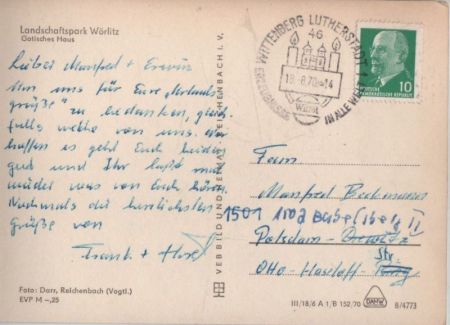 Landschaftspark Wörlitz
Gotisches Haus
Lieber Manfred + Erwin
Um uns für Eure Urlaubs
grüße zu bedanken, gleich
falls welche von uns. Wir
hoffen es geht Euch beiden
gut und Ihr laßt mal
wieder was von Euch hören.
Nochmals die herzlichsten
Grüße von
Foto: Darr, Reichenbach (Vogtl.)
EVP M –,25
VEB BILD UND HEIMAT REICHENBACH I. V.
WITTENBERG LUTHERSTADT 1
46
18.-8.70-14
ERZEUGNISSE
IN ALLE WELT
10
DEUTSCHE
DEMOKRATISCHE REPUBLIK
Fam
Manfred Beckmann
1501
Potsdam-Drewitz
Str.
Otto-Haseloff-Ring
III/18/6 A 1/B 152/70
B/4773